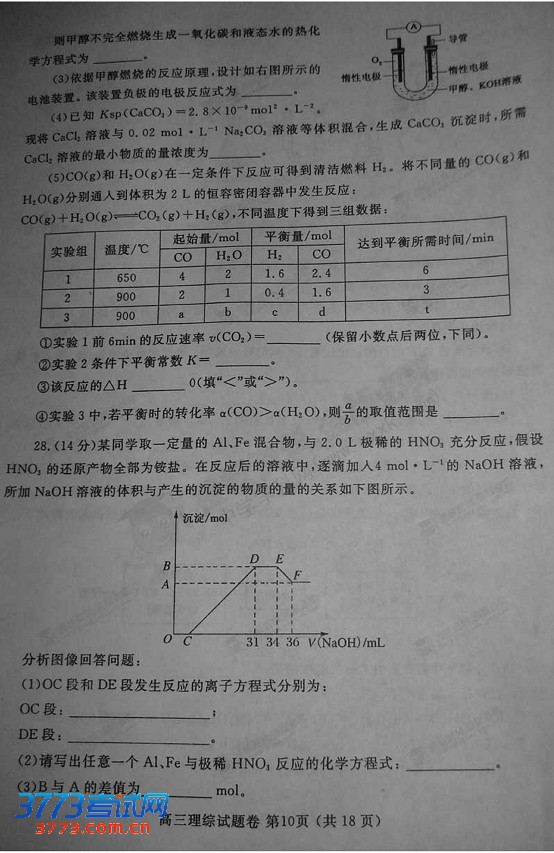 则甲醇不完全燃烧生成一氧化碳和液态水的热化
学方程式为________。
(3)依据甲醇燃烧的反应原理,设计如右图所示的
电池装置。该装置负极的电极反应式为________。
A
导管
O₂
惰性电极
惰性电极
甲醇、KOH溶液
(4)已知 Ksp(CaCO₃)=2.8×10⁻⁹mol²·L⁻²。
现将 CaCl₂ 溶液与 0.02 mol·L⁻¹ Na₂CO₃ 溶液等体积混合,生成 CaCO₃ 沉淀时,所需
CaCl₂ 溶液的最小物质的量浓度为________。
(5)CO(g)和 H₂O(g)在一定条件下反应可得到清洁燃料 H₂。将不同量的 CO(g)和
H₂O(g)分别通入到体积为 2 L 的恒容密闭容器中发生反应:
CO(g)+H₂O(g)⇌CO₂(g)+H₂(g),不同温度下得到三组数据:
实验组 温度/℃ 起始量/mol 平衡量/mol 达到平衡所需时间/min
CO H₂O H₂ CO
1 650 4 2 1.6 2.4 6
2 900 2 1 0.4 1.6 3
3 900 a b c d t
①实验 1 前 6min 的反应速率 v(CO₂)=________(保留小数点后两位,下同)。
②实验 2 条件下平衡常数 K=________。
③该反应的△H ________ 0(填“<”或“>”)。
④实验 3 中,若平衡时的转化率 α(CO)>α(H₂O),则a/b的取值范围是 ________。
28.(14 分)某同学取一定量的 Al、Fe 混合物,与 2.0 L 极稀的 HNO₃ 充分反应,假设
HNO₃ 的还原产物全部为铵盐。在反应后的溶液中,逐滴加入4 mol·L⁻¹的 NaOH 溶液,
所加 NaOH 溶液的体积与产生的沉淀的物质的量的关系如下图所示。
沉淀/mol
D E
B
F
A
O C 31 34 36 V(NaOH)/mL
分析图像回答问题:
(1)OC 段和 DE 段发生反应的离子方程式分别为:
OC 段:________;
DE 段:________。
(2)请写出任意一个 Al、Fe 与极稀 HNO₃ 反应的化学方程式:________。
(3)B 与 A 的差值为________mol。
3773考试网
3773.com.cn
高三理综试题卷 第10页(共 18 页)